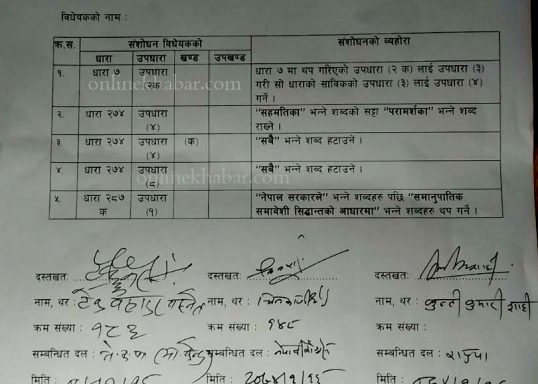 विधेयकको नाम :
क्र.स. संशोधन विधेयकको संशोधनको व्यहोरा
धारा उपधारा खण्ड उपखण्ड
१. धारा ७ उपधारा २क धारा ७ मा थप गरिएको उपधारा (२ क) लाई उपधारा (३)
गरी सो धाराको साविकको उपधारा (३) लाई उपधारा (४)
गर्ने ।
२. धारा २७४ उपधारा (४) "सहमतिका" भन्ने शब्दको सट्टा "परामर्शका" भन्ने शब्द
राख्ने ।
३. धारा २७४ उपधारा (४) (क) "सबै" भन्ने शब्द हटाउने ।
४. धारा २७४ उपधारा (८) "सबै" भन्ने शब्द हटाउने ।
५. धारा २८७ क उपधारा (१) "नेपाल सरकारले" भन्ने शब्दहरु पछि "समानुपातिक
समावेशी सिद्धान्तको आधारमा" भन्ने शब्दहरु थप गर्ने ।
onlinekhabar.com
onlinekhabar.com
दस्तखत: दस्तखत: दस्तखत:
नाम, थर : नाम, थर : नाम, थर : कुन्ती कुमारी शाही
क्रम संख्या : १८३ क्रम संख्या : १४८ क्रम संख्या :
सम्बन्धित दल : सम्बन्धित दल : सम्बन्धित दल : राप्रपा
मिति : मिति : मिति :